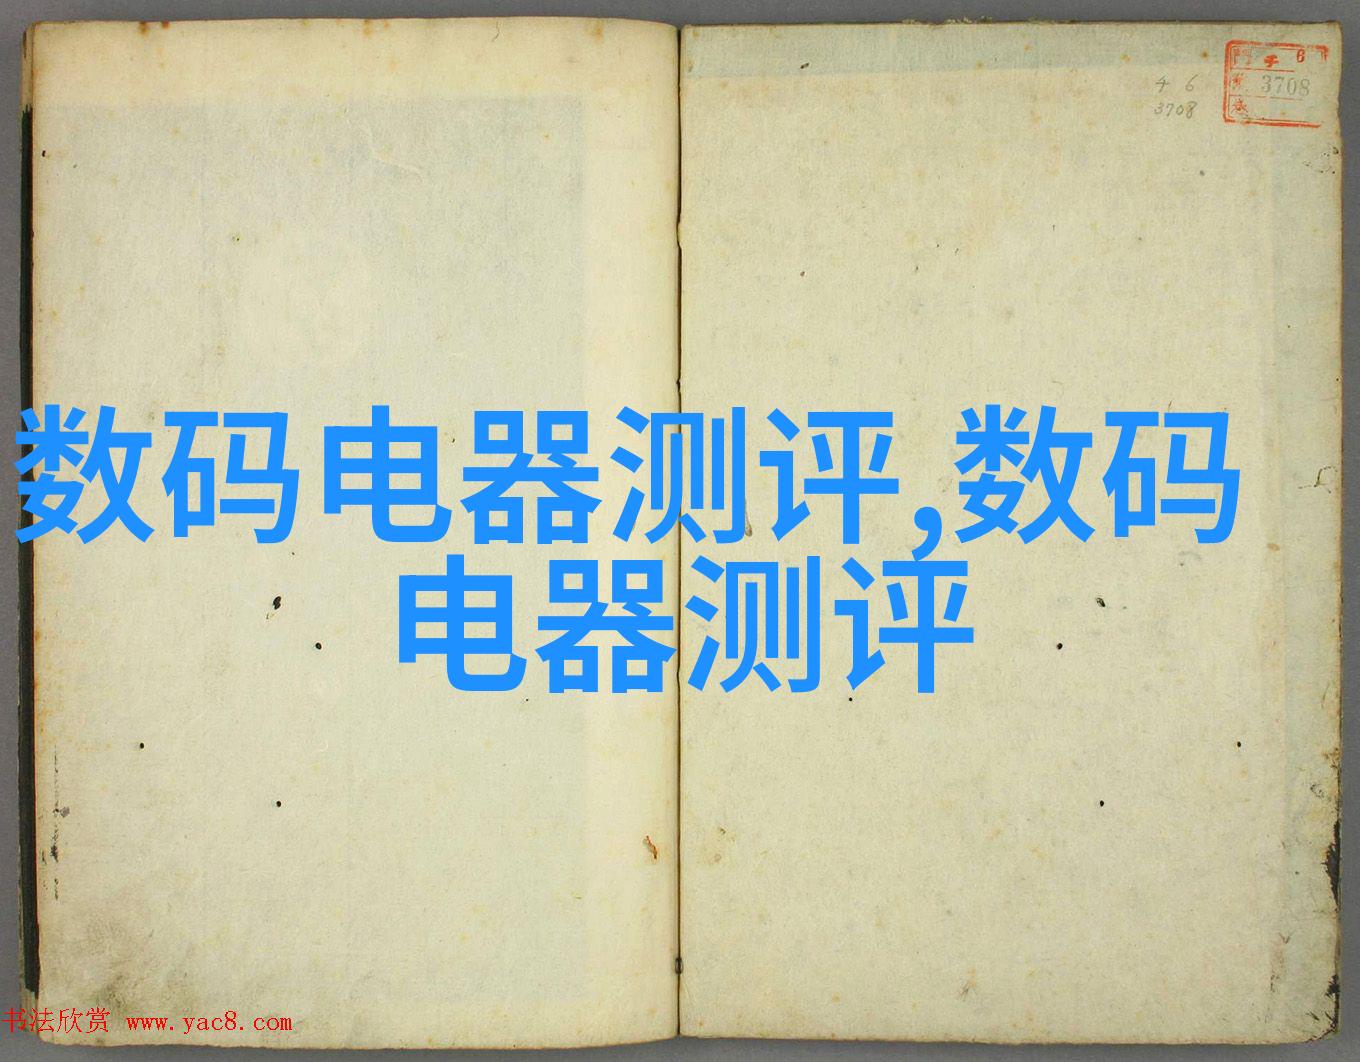 チ 6
3708
4 6
3708
数码电器测评,数码
电器测评
书法欣赏 www.yac8.com